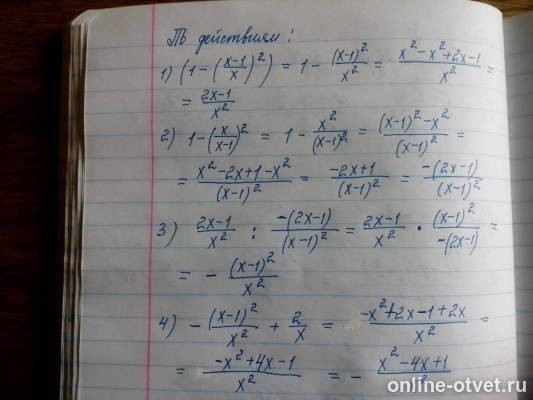 По действиям:
1) (1 - ((x-1)/x)²) = 1 - (x-1)²/x² = (x²-x²+2x-1)/x² =
= (2x-1)/x²
2) 1 - (x/(x-1))² = 1 - x²/(x-1)² = ((x-1)²-x²)/(x-1)² =
= (x²-2x+1-x²)/(x-1)² = (-2x+1)/(x-1)² = -(2x-1)/(x-1)²
3) (2x-1)/x² : -(2x-1)/(x-1)² = (2x-1)/x² · (x-1)²/-(2x-1) =
= - (x-1)²/x²
4) - (x-1)²/x² + 2/x = (-x²+2x-1+2x)/x² =
= (-x²+4x-1)/x² = - (x²-4x+1)/x²
online-otvet.ru